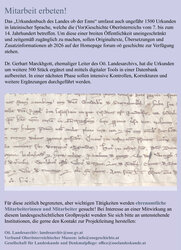 Mitarbeit erbeten!
Das „Urkundenbuch des Landes ob der Enns“ umfasst auch ungefähr 1500 Urkunden
in lateinischer Sprache, welche die (Vor)Geschichte Oberösterreichs vom 7. bis zum
14. Jahrhundert betreffen. Um diese einer breiten Öffentlichkeit uneingeschränkt
und zeitgemäß zugänglich zu machen, sollen Originaltexte, Übersetzungen und
Zusatzinformationen ab 2026 auf der Homepage forum oö geschichte zur Verfügung
stehen.
Dr. Gerhart Marckhgott, ehemaliger Leiter des Oö. Landesarchivs, hat die Urkunden
um weitere 500 Stück ergänzt und mittels digitaler Tools in einer Datenbank
aufbereitet. In einer nächsten Phase sollen intensive Kontrollen, Korrekturen und
weitere Ergänzungen durchgeführt werden.
Für diese zeitlich begrenzten, aber wichtigen Tätigkeiten werden ehrenamtliche
Mitarbeiterinnen und Mitarbeiter gesucht! Bei Interesse an einer Mitwirkung an
diesem landesgeschichtlichen Großprojekt wenden Sie sich bitte an untenstehende
Institutionen, die gerne den Kontakt zur Projektleitung herstellen:
Oö. Landesarchiv: landesarchiv@ooe.gv.at
Verbund Oberösterreichischer Museen: info@ooegeschichte.at
Gesellschaft für Landeskunde und Denkmalpflege: office@ooelandeskunde.at